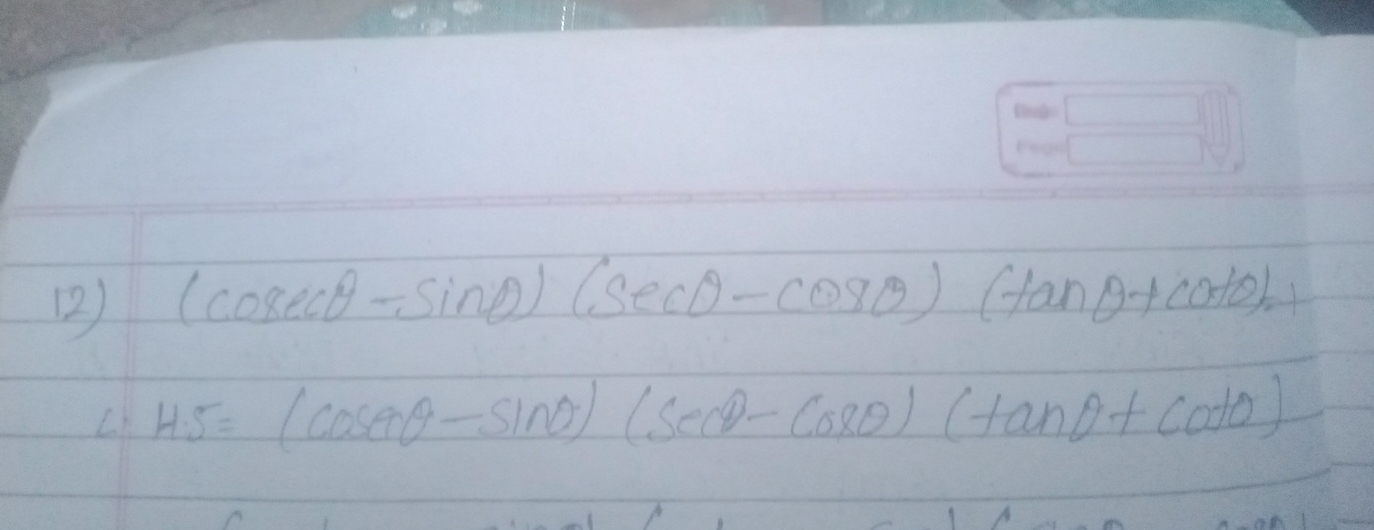 12) (cosecθ - sinθ) (secθ - cosθ) (tanθ + cotθ) = 1
L.H.S = (cosecθ - sinθ) (secθ - cosθ) (tanθ + cotθ)